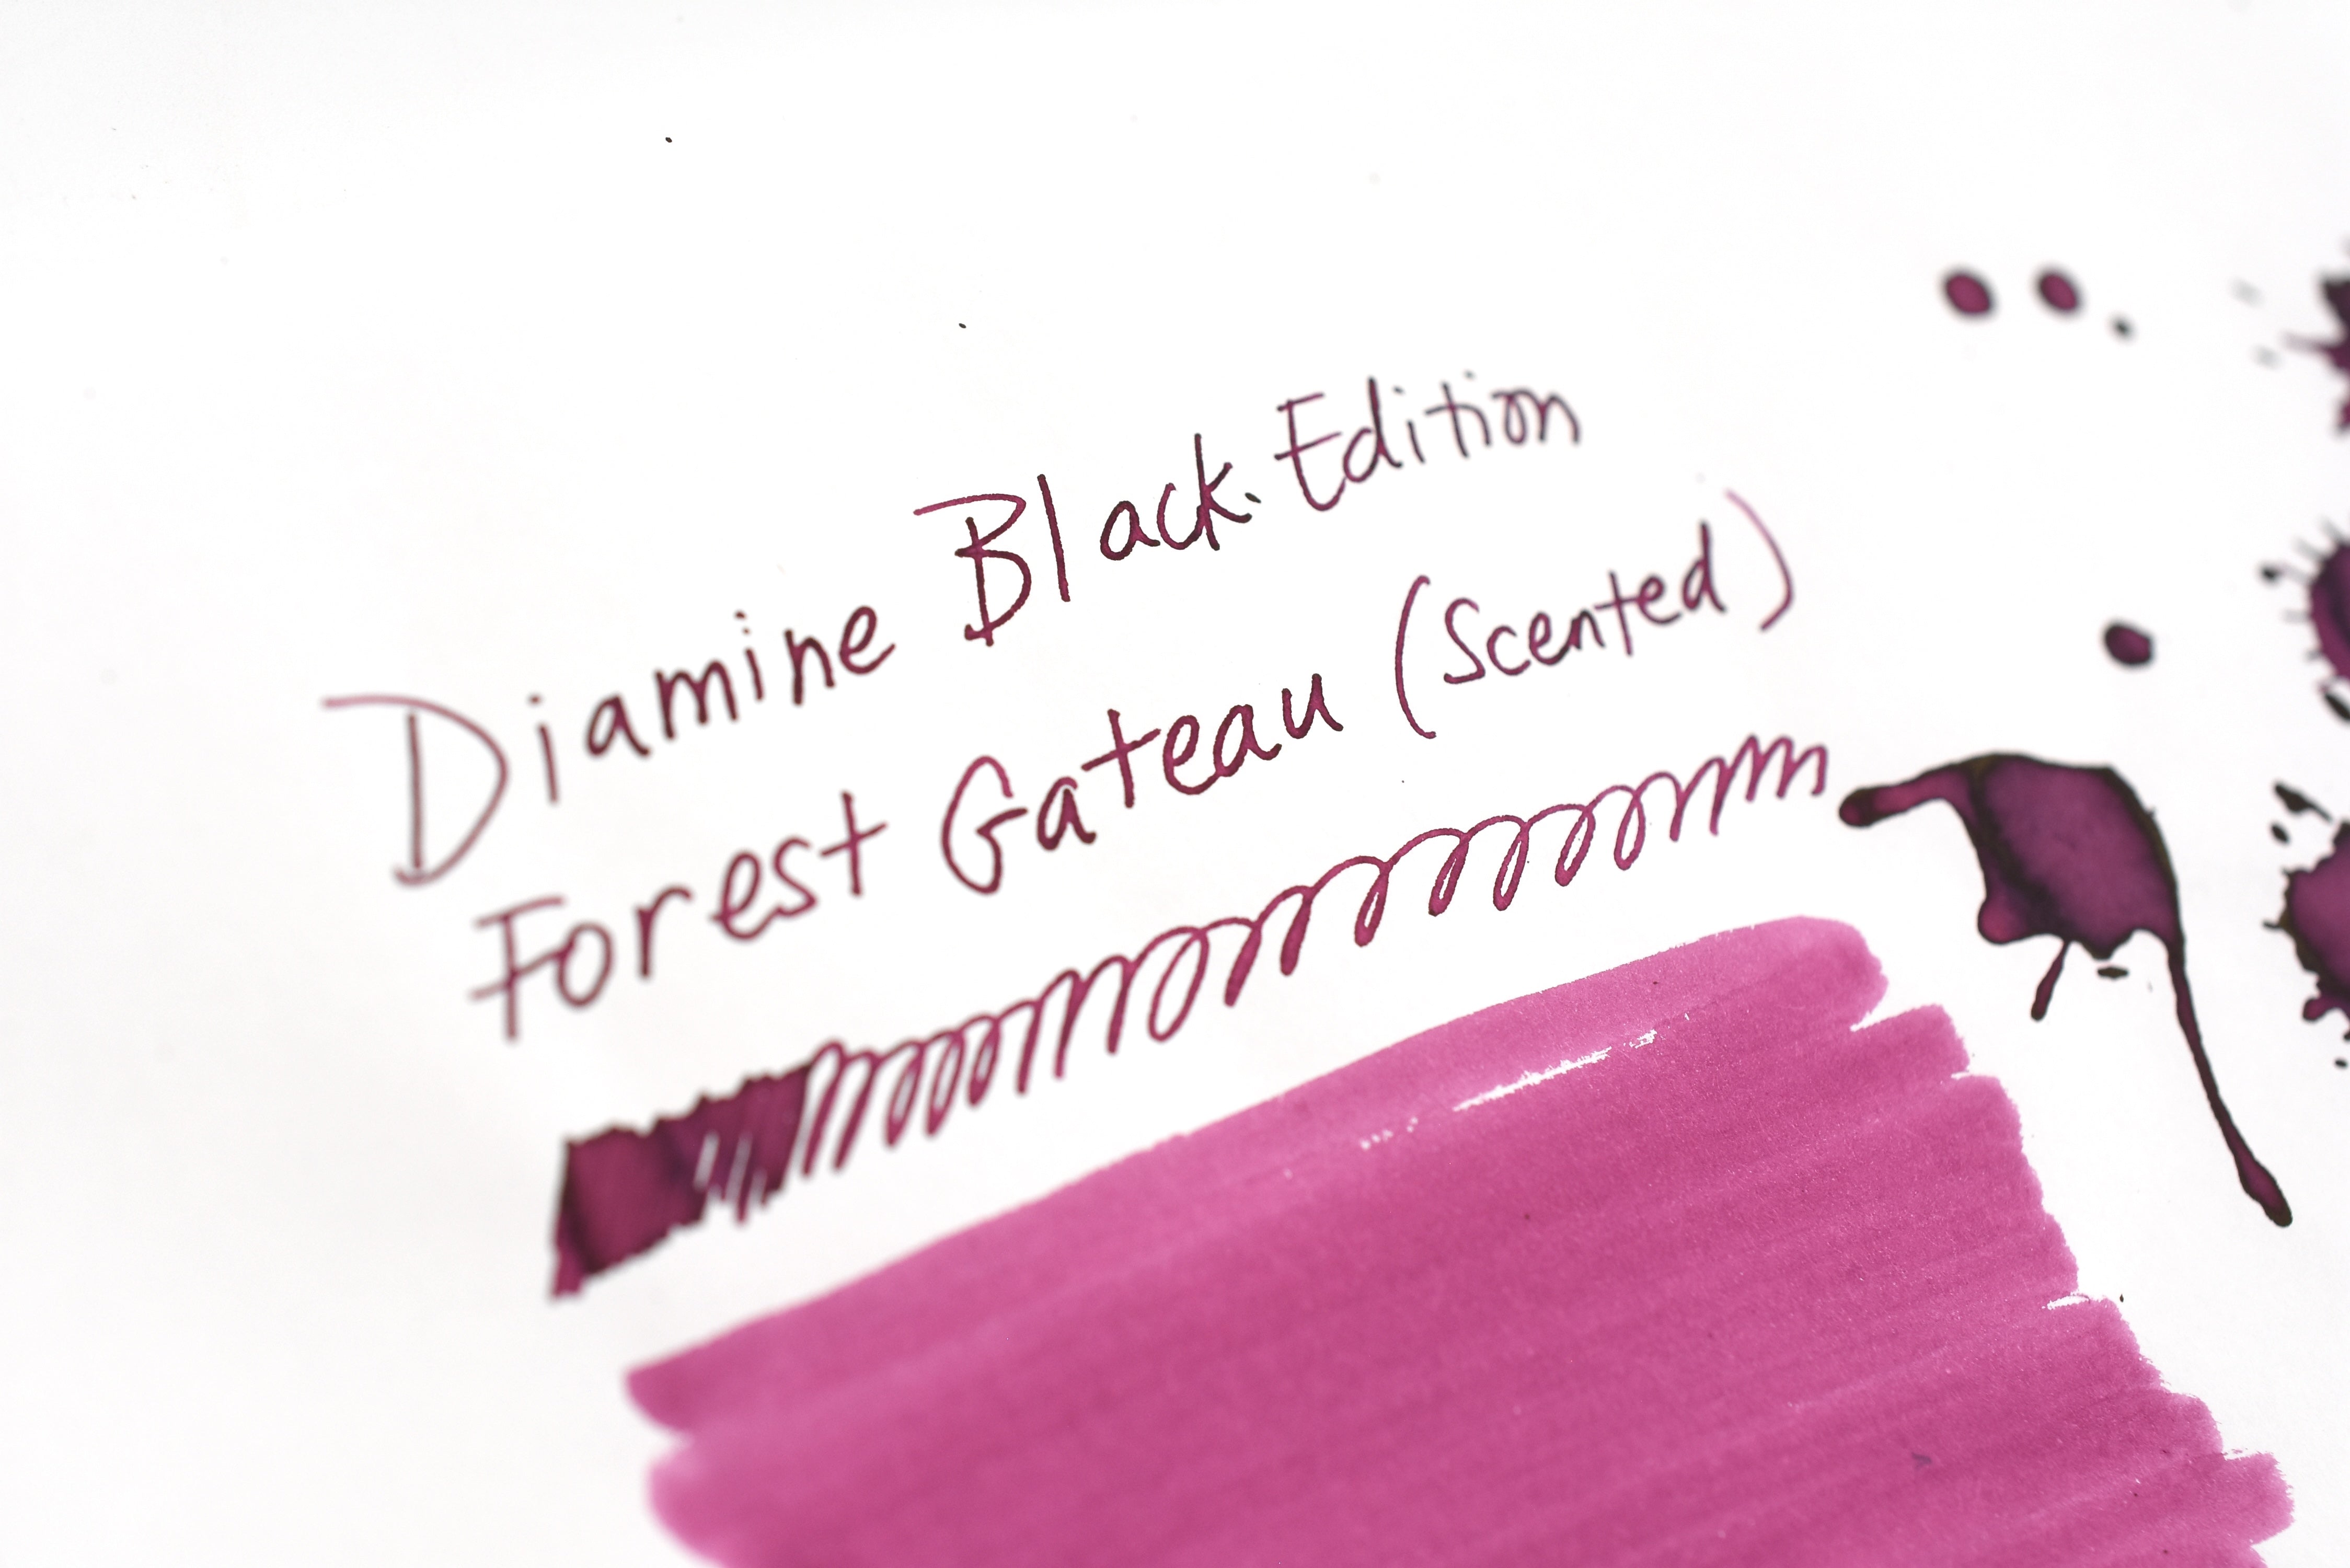 Diamine Black Edition
Forest Gateau (Scented)